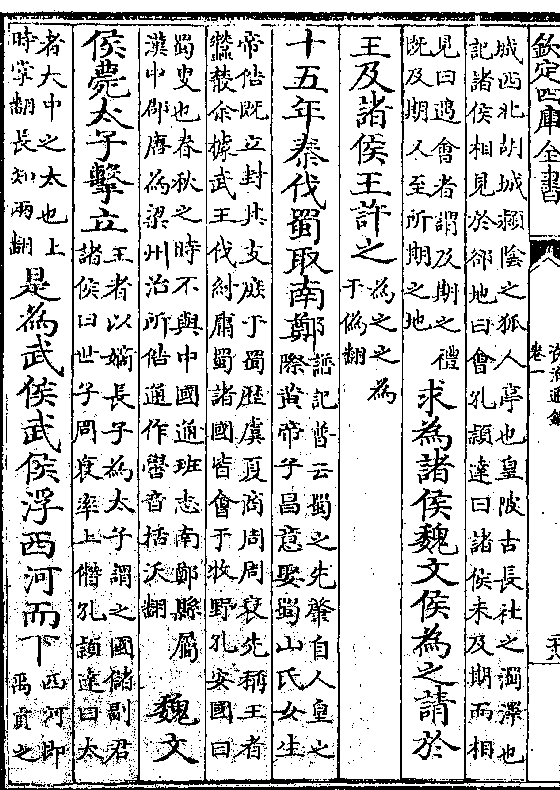 欽定四庫全書
資治通鑑
卷一
城西北胡城潁陰之狐人亭也皇陂古長社之濁澤也
記諸侯相見於郤地曰會孔穎達曰諸侯未及期而相
見曰遇會者謂及期之禮
既及期人至所期之地
求為諸侯魏文侯為之請於
王及諸侯王許之
為之之為
于偽翻
十五年秦伐蜀取南鄭
譜記普云蜀之先肇自人皇之
際黄帝子昌意娶蜀山氏女生
帝俈既立封其支庶于蜀歷虞夏商周周衰先稱王者
蠶叢余據武王伐紂庸蜀諸國皆會于牧野孔安國曰
蜀叟也春秋之時不與中國通班志南鄭縣屬
漢中郡唐為梁州治所俈通作嚳音括沃翻
魏文
侯薨太子擊立
王者以嫡長子為太子謂之國儲副君
諸侯曰世子周衰率上僭孔穎達曰太
者大中之太也上
時掌翻長知兩翻
是為武侯武侯浮西河而下
西河即
禹貢之